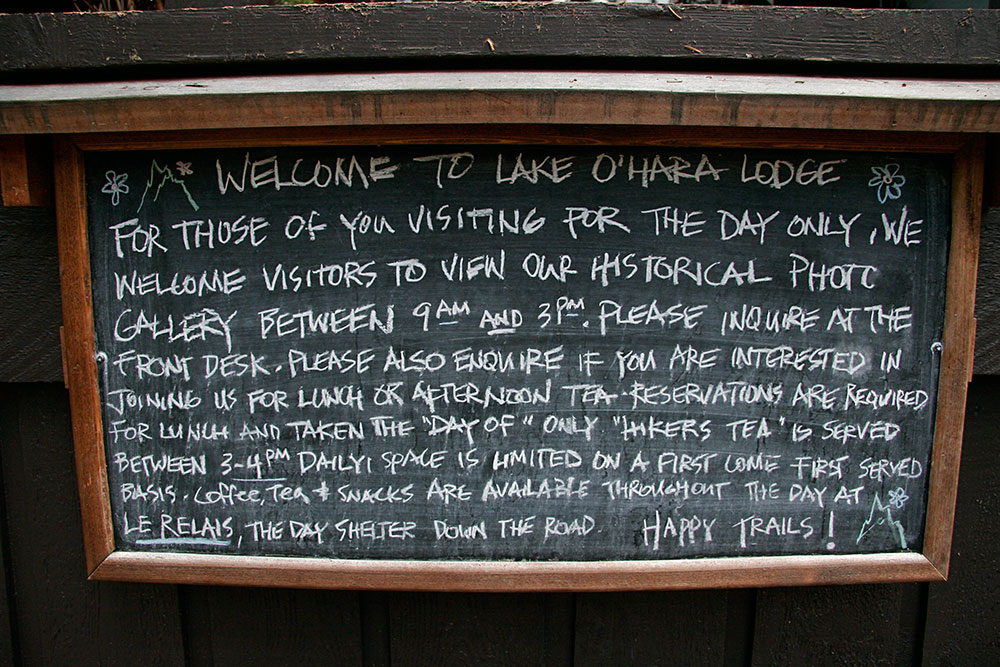 WELCOME TO LAKE O'HARA LODGE
FOR THOSE OF YOU VISITING FOR THE DAY ONLY, WE
WELCOME VISITORS TO VIEW OUR HISTORICAL PHOTO
GALLERY BETWEEN 9AM AND 3PM. PLEASE INQUIRE AT THE
FRONT DESK. PLEASE ALSO ENQUIRE IF YOU ARE INTERESTED IN
JOINING US FOR LUNCH OR AFTERNOON TEA. RESERVATIONS ARE REQUIRED
FOR LUNCH AND TAKEN THE "DAY OF" ONLY "HIKERS TEA" IS SERVED
BETWEEN 3-4PM DAILY, SPACE IS LIMITED ON A FIRST COME FIRST SERVED
BASIS. COFFEE, TEA & SNACKS ARE AVAILABLE THROUGHOUT THE DAY AT
LE RELAIS, THE DAY SHELTER DOWN THE ROAD. HAPPY TRAILS!